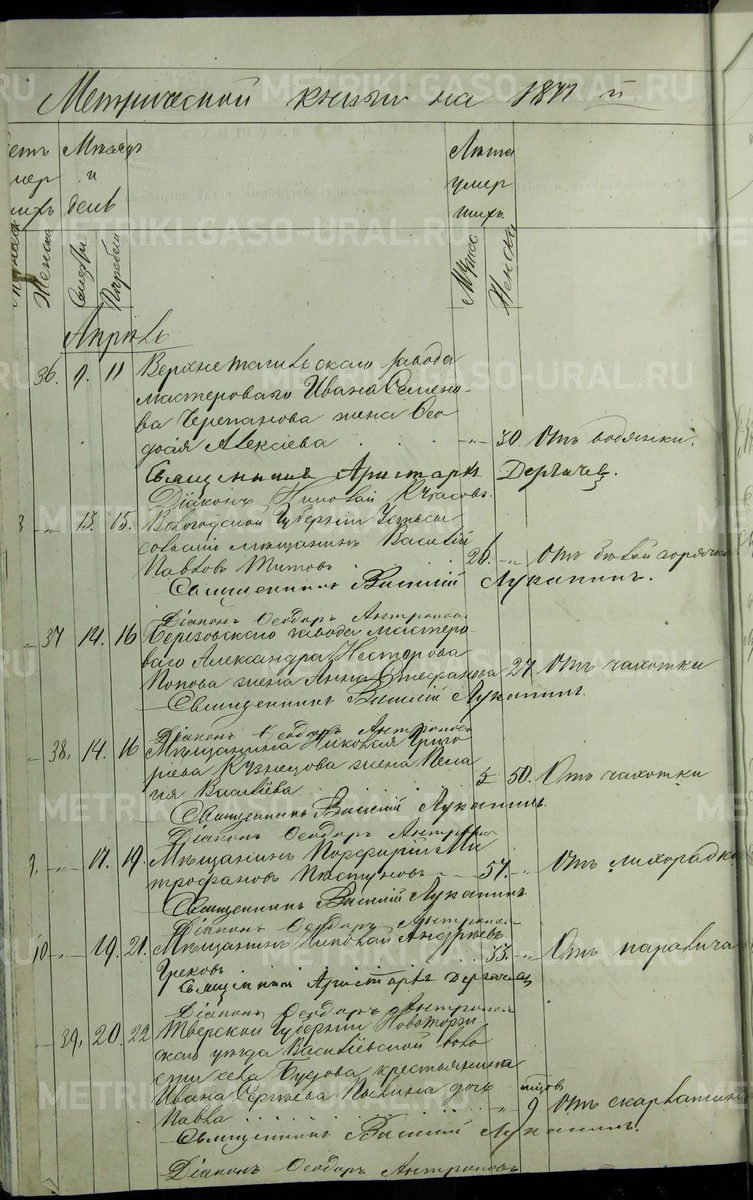 Метрической книги на 1871й
Счетъ умершихъ
Мѣсяцъ и день
Лѣта умершихъ
Мужска
Женска
Смерти
Погребен
Мужс
Женска
Апрѣль
36. 9. 11 Верхнетагильскаго завода
мастероваго Ивана Семено-
ва Черепанова жена Ѳео-
досія Алексіева 30 Отъ водянки.
Священникъ Аристархъ Дергачевъ.
Діаконъ Николай
13. 15. Вологодской Губерніи
мѣщанинъ Василій
Павловъ Титовъ 26 Отъ бѣлой горячки
Священникъ Василій Луканинъ.
Діаконъ Ѳеодоръ Антроповъ
37 14. 16 Березовскаго завода мастеро-
ваго Александра Нестерова
Попова жена Анна Стефанова 27 Отъ чахотки
Священникъ Василій Луканинъ.
Діаконъ Ѳеодоръ Антроповъ
38. 14. 16 Мѣщанина Николая Григо-
рьева Кузнецова жена Пела-
гія Васильева 50. Отъ чахотки
Священникъ Василій Луканинъ.
Діаконъ Ѳеодоръ Антроповъ
9. 17. 19. Мѣщанинъ Порфирій Ми-
трофановъ Пастуховъ 57. Отъ лихорадки
Священникъ Василій Луканинъ
Діаконъ Ѳеодоръ Антропов.
10 19. 21. Мѣщанинъ Николай Андреевъ
Грековъ 33. Отъ паралича
Священникъ Аристархъ Дергачевъ
Діаконъ Ѳеодоръ Антропов
39. 20. 22 Тверской Губерніи Новоторж-
скаго уѣзда Васильевской воло-
сти села крестьянина
Ивана Сергѣева дочь мѣсяцов
Павла 9 Отъ скарлатины
Священникъ Василій Луканинъ.
Діаконъ Ѳеодоръ Антроповъ
METRIKI.GASO-URAL.RU